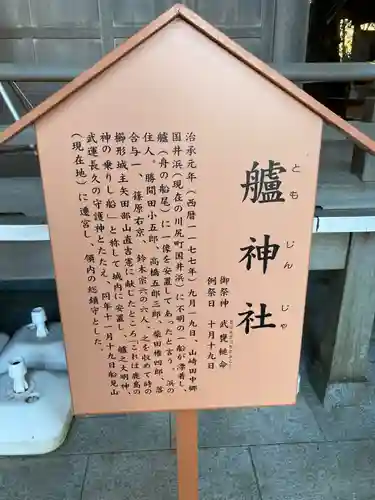 艫神社
ともじんじゃ
御祭神　武甕槌命
例祭日　十月十九日
治承元年(西暦一一七七年)九月十九日、山崎田中郷
国井浜(現在の川尻町国井浜)に不明の一船が漂着し、
艫(舟の船尾)に一像を安置してあったと言う。浜の
住人。勝間田小五郎、高橋五郎三郎、柴田権四郎、落
合与一、篠原右京、鈴木宗六の六人、之を収めて時の
櫛形城主矢田部山直吉憲に献じたところ「これは鹿島の
神の乗りし船」と称して城内に安置し、艫之大明神、
武運長久の守護神とたたえ、同年十一月十九日船見山
(現在地)に遷宮し、領内の総鎮守とした。